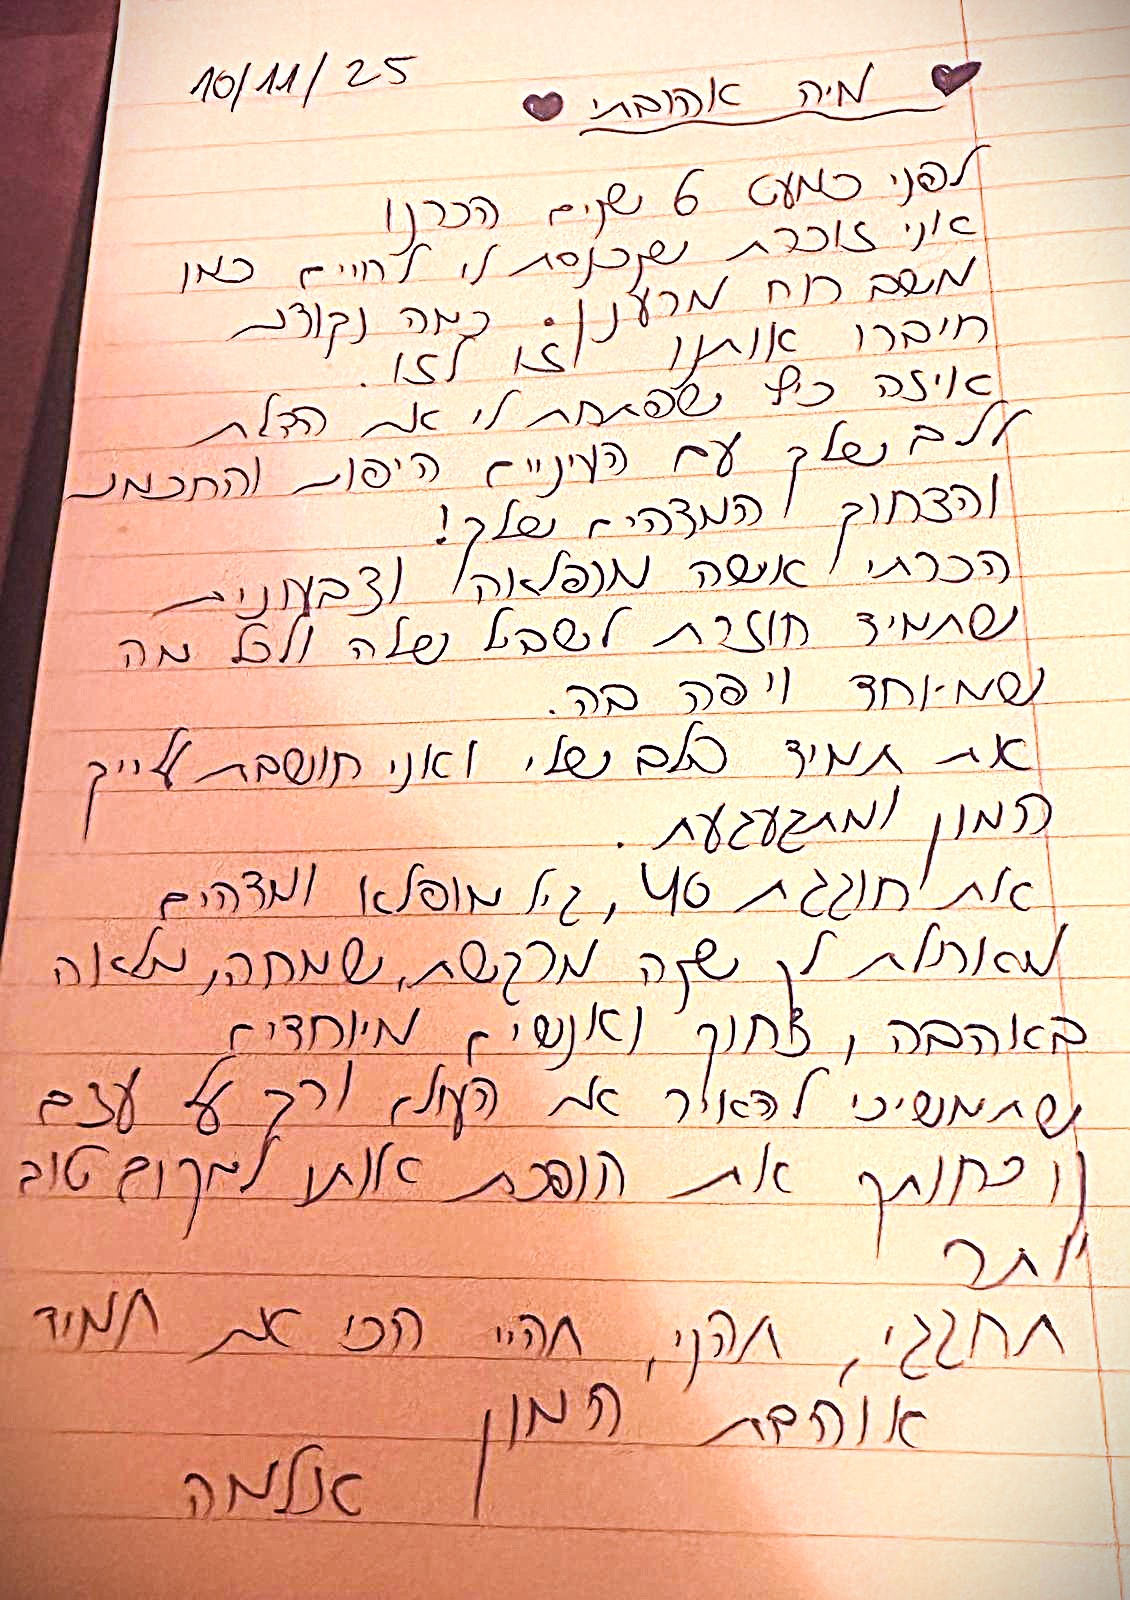 10/11/25
מיה אהובתי
לפני כמעט 6 שנים הכרנו
אני זוכרת שנכנסת לי לחיים כמו
משב רוח מרענן. כמה נקודות
חיברו אותנו זו לזו.
איזה כיף שפתחת לי את הדלת
ללב שלך עם העיניים היפות והחכמות
והצחוק המדהים שלך!
הכרתי אישה מופלאה וצבעונית
שתמיד חוזרת לשביל שלה ולכל מה
שמיוחד ויפה בה.
את תמיד בלב שלי ואני חושבת עלייך
המון ומתגעגעת.
את חוגגת 40, גיל מופלא ומדהים
מאחלת לך שנה מרגשת, שמחה, מלאה
באהבה, צחוק ואנשים מיוחדים
שתמשיכי להאיר את העולם ורק על עצם
נוכחותך את הופכת אותו למקום טוב
יותר
תחגגי, תהני, תהיי הכי את תמיד
אוהבת המון
אלמה